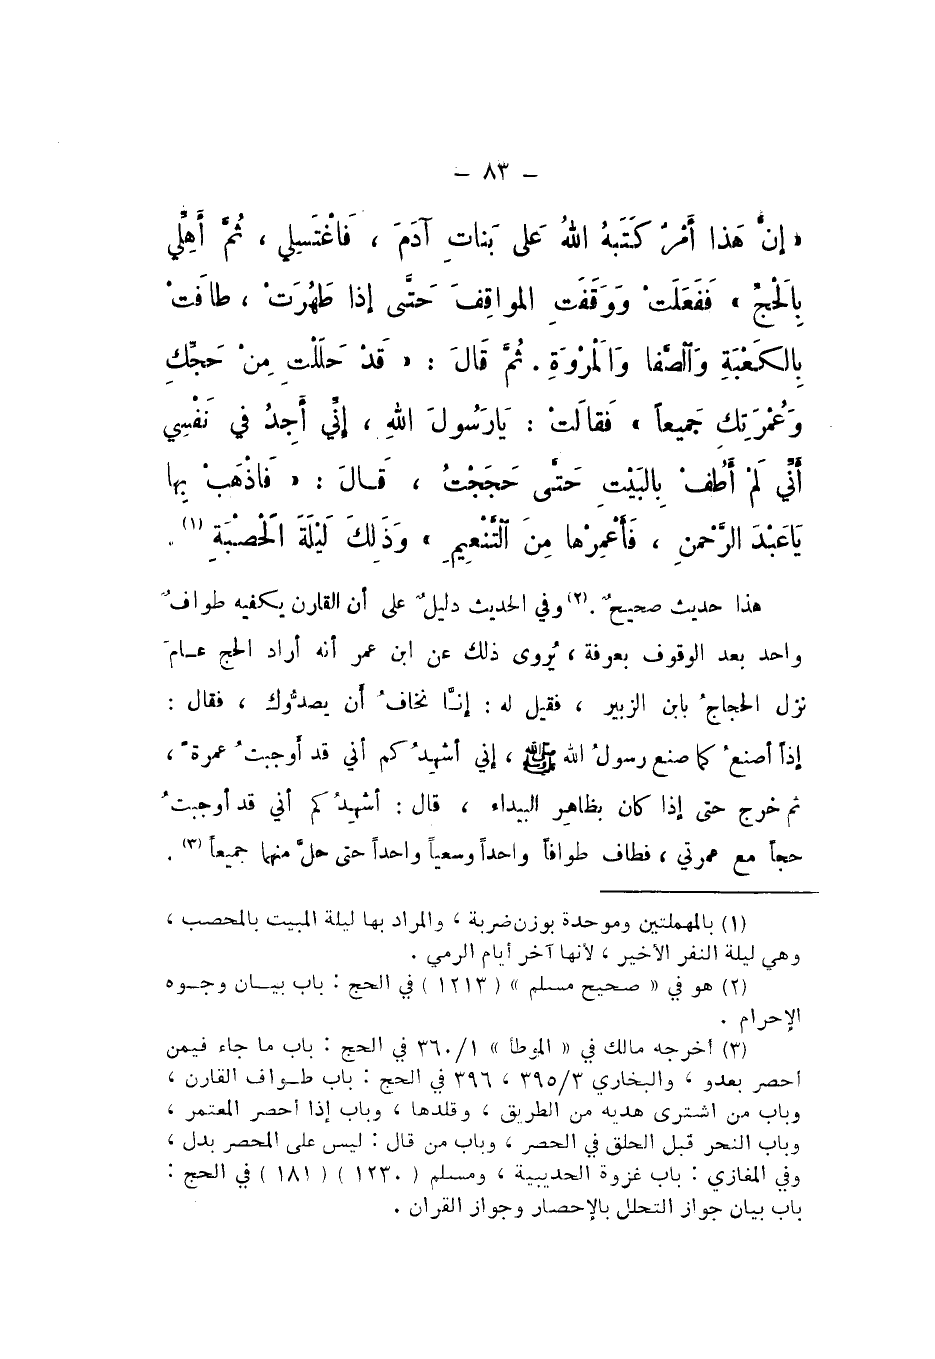 – ٨٣ –
« إنَّ هَذا أَمْرٌ كَتَبَهُ اللهُ عَلى بَناتِ آدَمَ ، فَاغْتَسِلِي ، ثُمَّ أَهِلِّي
بِالَحْجِّ » فَفَعَلَتْ وَوَقَفَتِ المواقِفَ حَتَّى إذا طَهُرَتْ ، طافَتْ
بِالكَعْبَةِ وَالصَّفا وَالَمْرْوَةِ . ثُمَّ قَالَ : « قَدْ حَلَلْتِ مِنْ حَجِّكِ
وَعُمْرَتِكِ جَميعاً » فَقالَتْ : يَارَسُولَ اللهِ ، إنِّي أَجِدُ في نَفْسِي
أَنِّي لَمْ أَطُفْ بِالبَيْتِ حَتَّى حَجَجْتُ ، قَـالَ : « فَاذْهَبْ بِها
يَاعَبْدَ الرَّحْمنِ ، فَأَعْمِرْها مِنَ التَّنْعِيمِ » وَذَلِكَ لَيْلَةَ الَحْصْبَةِ (١) .
هذا حديث صحيحٌ . (٢) وفي الحديث دليلٌ على أن القارن يكفيه طوافٌ
واحد بعد الوقوف بعرفة ، يُروى ذلك عن ابن عمر أنه أراد الحج عـامَ
نزل الحجاجُ بابن الزبير ، فقيل له : إنـَّا نخافُ أن يصدُّوك ، فقال :
إذاً أصنعُ كما صنع رسولُ الله ﷺ ، إني أشهدُكم أني قد أوجبتُ عمرةً ،
ثم خرج حتى إذا كان بظاهر البيداء ، قال : أشهدُكم أني قد أوجبتُ
حجاً مع عمرتي ، فطاف طوافاً واحداً وسعياً واحداً حتى حلَّ منهما جميعاً (٣) .
(١) بالمهملتين وموحدة بوزن ضربة ، والمراد بها ليلة المبيت بالمحصب ،
وهي ليلة النفر الأخير ، لأنها آخر أيام الرمي .
(٢) هو في « صحيح مسلم » ( ١٢١٣ ) في الحج : باب بيـان وجـوه
الإحرام .
(٣) أخرجه مالك في « الموطأ » ٣٦٠/١ في الحج : باب ما جاء فيمن
أحصر بعدو ، والبخاري ٣٩٥/٣ ، ٣٩٦ في الحج : باب طـواف القارن ،
وباب من اشترى هديه من الطريق ، وقلدها ، وباب إذا أحصر المعتمر ،
وباب النحر قبل الحلق في الحصر ، وباب من قال : ليس على المحصر بدل ،
وفي المغازي : باب غزوة الحديبية ، ومسلم ( ١٢٣٠ ) ( ١٨١ ) في الحج :
باب بيان جواز التحلل بالإحصار وجواز القران .